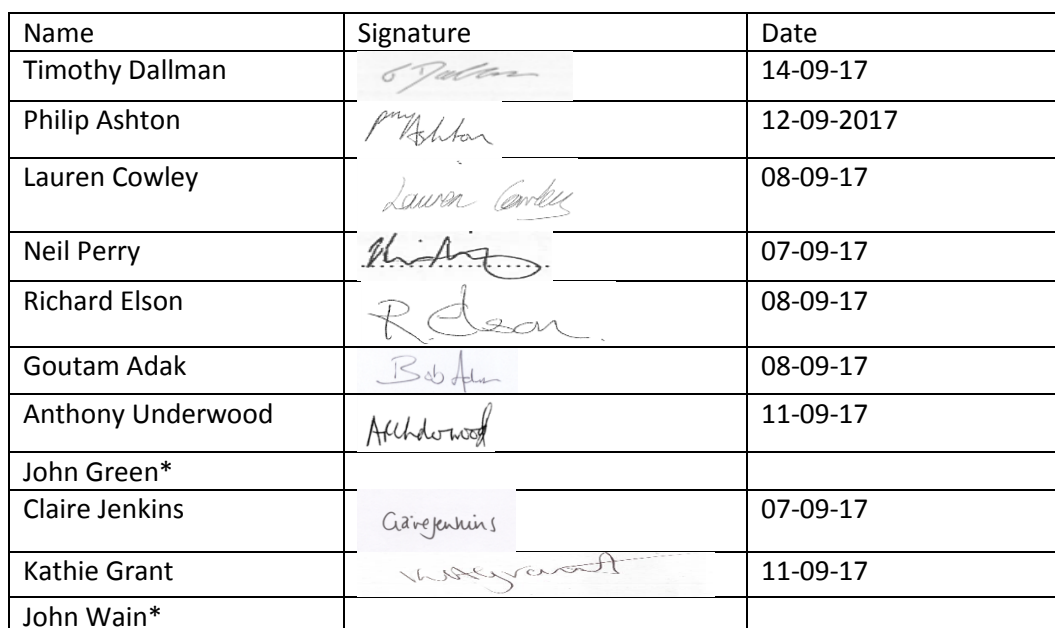 Name Signature Date
Timothy Dallman 14-09-17
Philip Ashton Ashton 12-09-2017
Lauren Cowley Lauren Cowley 08-09-17
Neil Perry 07-09-17
Richard Elson R. Elson 08-09-17
Goutam Adak Bob Adak 08-09-17
Anthony Underwood AUnderwood 11-09-17
John Green*
Claire Jenkins Claire Jenkins 07-09-17
Kathie Grant 11-09-17
John Wain*